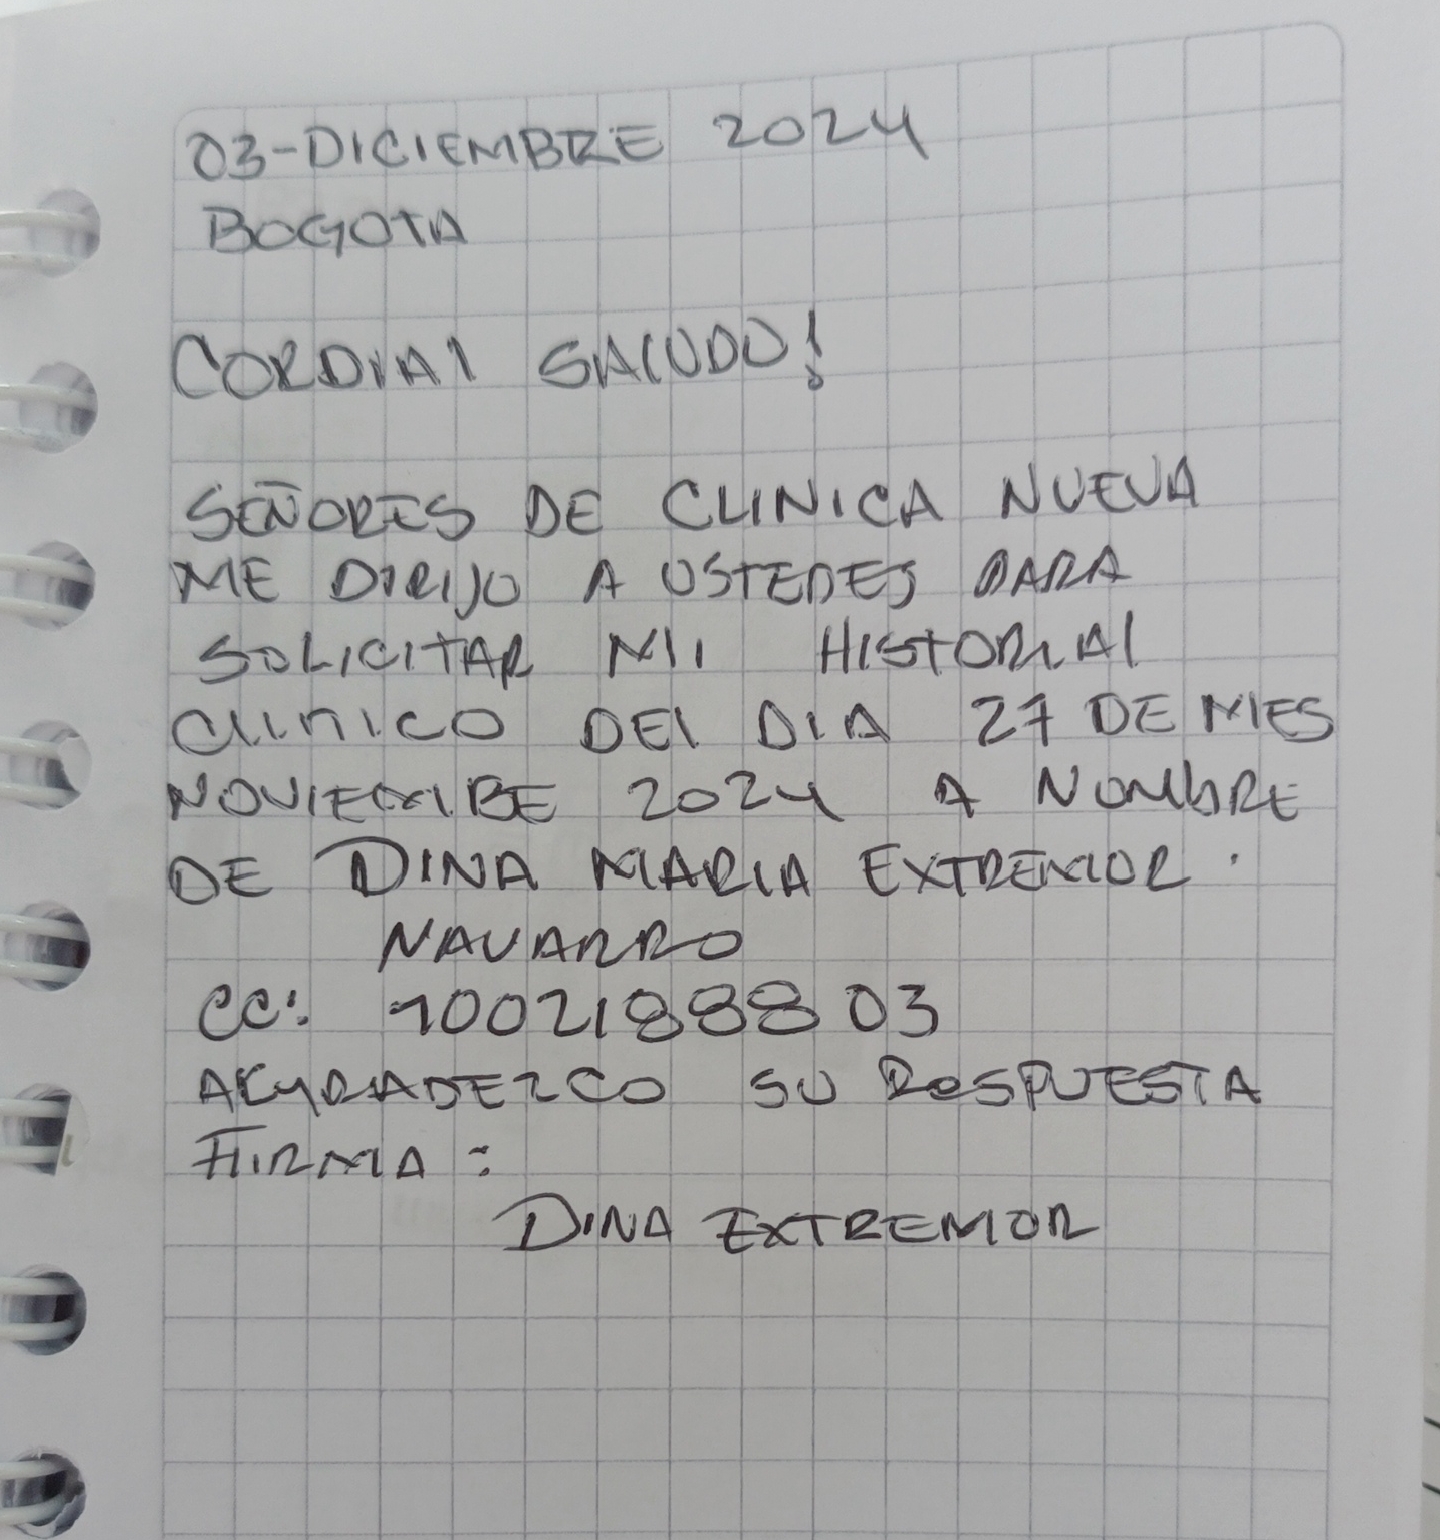 03-DICIEMBRE 2024
BOGOTA
CORDIAl SAlUDO!
SEÑORES DE CLINICA NUEVA
ME DIRIJO A USTEDES PARA
SOLICITAR MI HISTORIAl
ClINICO DEl DIA 27 DE MES
NOVIEMBE 2024 A NOMbRE
DE DINA MARIA EXTREMOR.
NAVARRO
CC: 1002188803
AGRADEZCO SU RESPUESTA
FIRMA:
DINA EXTREMOR